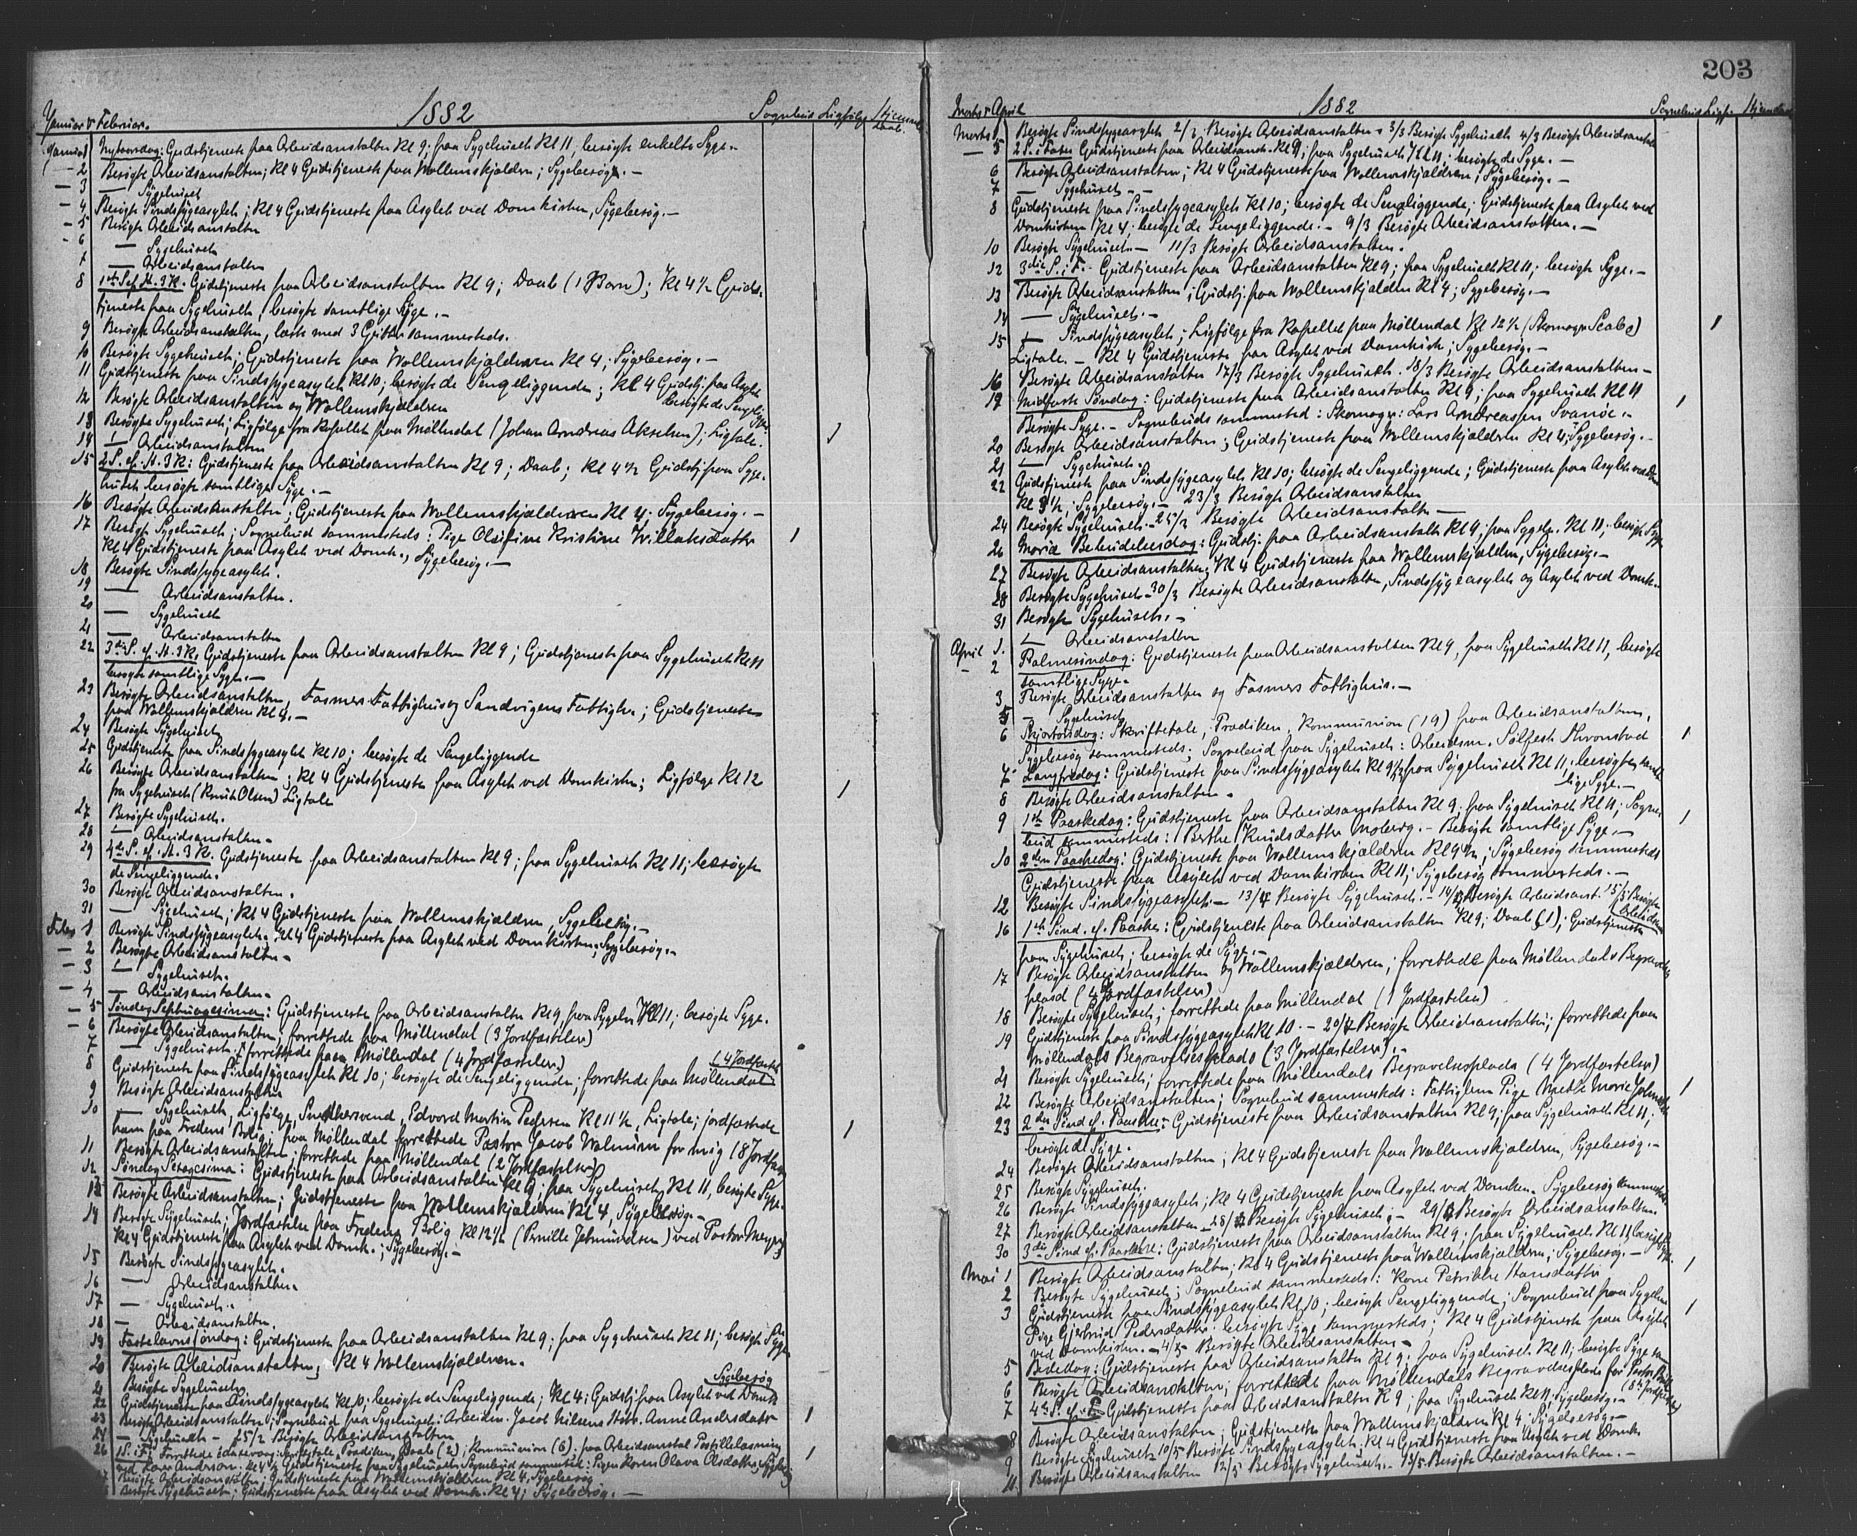 203
Januar & Februar. 1882 Sognebud Ligfølge Hjemmedaab.
Januar 1 Nytaarsdag: Gudstjeneste paa Arbeidsanstalten Kl 9; paa Sygehuset Kl 11, besøgte enkelte Syge.
2 Besøgte Arbeidsanstalten; Kl 4 Gudstjeneste paa Mollemskjælderen; Sygebesøg. —
3 — Sygehuset
4 Besøgte Sindssygeasylet; Kl 4 Gudstjeneste paa Asylet ved Domkirken, Sygebesøg. —
5 Besøgte Arbeidsanstalten
6 — Sygehuset
7 — Arbeidsanstalten
8 1ste S. ef. H. 3 K. Gudstjeneste paa Arbeidsanstalten Kl 9; Daab (1 Barn); Kl 4½ Guds-
tjeneste paa Sygehuset, besøgte samtlige Syge. —
9 Besøgte Arbeidsanstalten, læste med 3 Gutter sammesteds.
10 Besøgte Sygehuset; Gudstjeneste paa Mollemskjælderen Kl 4; Sygebesøg. —
11 Gudstjeneste paa Sindssygeasylet Kl 10; besøgte de Sengeliggende; Kl 4 Gudstj. paa Asylet
12 Besøgte Arbeidsanstalten og Mollemskjælderen besøgte de Sengeliggende
13 Besøgte Sygehuset; Ligfølge fra Kapellet paa Møllendal (Johan Andreas Akselsen); Ligtale. 1
14 — Arbeidsanstalten
15 2 S. ef. H. 3 K: Gudstjeneste paa Arbeidsanstalten Kl 9; Daab; Kl 4½ Gudstj. paa Syge-
huset, besøgte samtlige Syge. —
16 Besøgte Arbeidsanstalten; Gudstjeneste paa Mollemskjælderen Kl 4. Sygebesøg. —
17 Besøgte Sygehuset; Sognebud sammesteds: Pige Olufine Kristine Willaksdatter 1
Kl 4 Gudstjeneste paa Asylet ved Domk., Sygebesøg. —
18 Besøgte Sindssygeasylet.
19 — Arbeidsanstalten.
20 — Sygehuset
21 — Arbeidsanstalten
22 3die S. ef. H. 3 K. Gudstjeneste paa Arbeidsanstalten Kl 9; Gudstjeneste paa Sygehuset Kl 11
besøgte samtlige Syge. —
23 Besøgte Arbeidsanstalten, Fasmers Fattighus og Sandvigens Fattigh.; Gudstjeneste
paa Mollemskjælderen Kl 4. —
24 Besøgte Sygehuset
25 Gudstjeneste paa Sindssygeasylet Kl 10; besøgte de Sengeliggende
26 Besøgte Arbeidsanstalten; Kl 4 Gudstjeneste paa Asylet ved Domkirken; Ligfølge Kl 12
fra Sygehuset (Knut Olsen) Ligtale 1
27 Besøgte Sygehuset.
28 — Arbeidsanstalten.
29 4de S. ef. H. 3 K. Gudstjeneste paa Arbeidsanstalten Kl 9; paa Sygehuset Kl 11; besøgte
de Sengeliggende.
30 Besøgte Arbeidsanstalten.
31 — Sygehuset; Kl 4 Gudstjeneste paa Mollemskjælderen, Sygebesøg. —
Febr 1 Besøgte Sindssygeasylet. Kl 4 Gudstjeneste paa Asylet ved Domkirken; Sygebesøg. —
2 Besøgte Arbeidsanstalten.
3 — Sygehuset.
4 — Arbeidsanstalten.
5 Søndag Septuagesima: Gudstjeneste paa Arbeidsanstalten Kl 9, paa Sygehuset Kl 11; besøgte Syge.
6 Besøgte Arbeidsanstalten, forrettede paa Møllendal (3 Jordfæstelser)
7 — Sygehuset, forrettede paa Møllendal (4 Jordfæstelser)
8 Gudstjeneste paa Sindssygeasylet Kl 10; besøgte de Sengeliggende; forrettede paa Møllendal (4 Jordfæstel
9 Besøgte Arbeidsanstalten
10 — Sygehuset, Ligfølge, Snedkersvend Edvard Martin Pedersen Kl 11½, Ligtale; jordfæstede
ham paa Fredens Bolig; paa Møllendal forrettede Pastor Jacob Walnum for mig (8 Jordfæst 1
11 Besøgte Arbeidsanstalten, forrettede paa Møllendal (2 Jordfæstelser)
12 Søndag Sexagesima: Gudstjeneste paa Arbeidsanstalten Kl 9, paa Sygehuset Kl 11, besøgte Syge.
13 Besøgte Arbeidsanstalten; Gudstjeneste paa Mollemskjælderen Kl 4, Sygebesøg. —
14 Besøgte Sygehuset; Jordfæstelse paa Fredens Bolig Kl 12½ (Pernille Jetmundsen) ved Pastor Meyer
Kl 4 Gudstjeneste paa Asylet ved Domk.; Sygebesøg. —
15 Besøgte Sindssygeasylet.
16 — Arbeidsanstalten.
17 — Sygehuset.
18 — Arbeidsanstalten.
19 Fastelavnssøndag: Gudstjeneste paa Arbeidsanstalten Kl 9; paa Sygehuset Kl 11; besøgte de Syge
20 Besøgte Arbeidsanstalten; Kl 4 Mollemskjælderen.
21 Besøgte Sygehuset Sygebesøg
22 Gudstjeneste paa Sindssygeasylet Kl 10; besøgte de Sengeliggende; Kl 4: Gudstj. paa Asylet ved Domk
23 Besøgte Arbeidsanstalten; Sognebud paa Sygehuset: Arbeider Jacob Nilsens Anne Andersdatter 1
24 — Sygehuset — 25/2 Besøgte Arbeidsanstalten
26 1 S. i F. Forrettede Skriftetale, Prædiken, Daab (2), Kommunion (6), paa Arbeidsanstal Postillelæsning
Kl 4½ Gudstjeneste paa Sygehuset, Sognebud sammesteds: Pigen Karen Olava Olsdatter, Sygebesøg 1
Besøgte Arbeidsanstalten; Gudstjeneste paa Mollemskjælderen Kl 4, Sygebesøg
Besøgte Sygehuset; Gudstjeneste paa Asylet ved Domk. Kl 4; Sygebesøg. —
Marts & April 1882 Sognebud Ligf. Hjemmedaab
Marts 1 Besøgte Sindssygeasylet 2/3, Besøgte Arbeidsanstalten 3/3 Besøgte Sygehuset 4/3 Besøgte Arbeidsanstalt
5 2 S. i Fasten Gudstjeneste paa Arbeidsanst. Kl 9; paa Sygehuset Kl 11; besøgte de Syge. —
6 Besøgte Arbeidsanstalten; Kl 4 Gudstjeneste paa Mollemskjælderen; Sygebesøg. —
7 — Sygehuset —
8 Gudstjeneste paa Sindssygeasylet Kl 10; besøgte de Sengeliggende; Gudstjeneste paa Asylet ved
Domkirken Kl 4; besøgte de Sengeliggende. — 9/3 Besøgte Arbeidsanstalten. —
10 Besøgte Sygehuset — 11/3 Besøgte Arbeidsanstalten.
12 3die S. i F. Gudstjeneste paa Arbeidsanstalten Kl 9; paa Sygehuset Kl 11; besøgte Syge. —
13 Besøgte Arbeidsanstalten; Gudstj. paa Mollemskjælderen Kl 4; Sygebesøg. —
14 — Sygehuset. —
15 — Sindssygeasylet; Ligfølge fra Kapellet paa Møllendal Kl 12½ (Skomager) 1
Ligtale. — Kl 4 Gudstjeneste paa Asylet ved Domkirk; Sygebesøg. —
16 Besøgte Arbeidsanstalten 17/3 Besøgte Sygehuset. 18/3 Besøgte Arbeidsanstalten —
19 Midfaste Søndag: Gudstjeneste paa Arbeidsanstalten Kl 9; paa Sygehuset Kl 11
Besøgte Syge. — Sognebud sammested: Skomager Lars Andreassen Svanøe. 1
20 Besøgte Arbeidsanstalten; Gudstjeneste paa Mollemskjælderen Kl 4; Sygebesøg. —
21 — Sygehuset.
22 Gudstjeneste paa Sindssygeasylet Kl 10; besøgte de Sengeliggende; Gudstjeneste paa Asylet ved Dom
Kl 3½; Sygebesøg. — 23/3 Besøgte Arbeidsanstalten
24 Besøgte Sygehuset. 25/3 Besøgte Arbeidsanstalt —
26 Mariæ Bebudelsesdag: Gudstj. paa Arbeidsanstalt Kl 9; paa Sygeh. Kl 11; besøgte Syge
27 Besøgte Arbeidsanstalten; Kl 4 Gudstjeneste paa Mollemskjælderen, Sygebesøg. —
28 Besøgte Sygehuset 30/3 Besøgte Arbeidsanstalten, Sindssygeasylet og Asylet ved Domk.
31 Besøgte Sygehuset. —
April 1. — Arbeidsanstalten
2 Palmesøndag: Gudstjeneste paa Arbeidsanstalten Kl 9, paa Sygehuset Kl 11, besøgte
samtlige Syge.
3 Besøgte Arbeidsanstalten og Fasmers Fattighus. —
5 — Sygehuset
6 Skjærtorsdag: Skriftetale, Prædiken, Kommunion (19) paa Arbeidsanstalten,
Sygebesøg sammesteds; Sognebud paa Sygehuset: Arbeidsm. 1
7 Langfredag: Gudstjeneste paa Sindssygeasylet Kl 9½, paa Sygehuset Kl 11, besøgte samt-
lige Syge. —
8 Besøgte Arbeidsanstalten.
9 1ste Paaskedag: Gudstjeneste paa Arbeidsanstalten Kl 9; paa Sygehuset Kl 11; Sogne-
bud sammesteds: Berthe Knudsdatter Moberg. — Besøgte samtlige Syge. — 1
10 2den Paaskedag: Gudstjeneste paa Mollemskjælderen Kl 9½; Sygebesøg sammesteds
Gudstjeneste paa Asylet ved Domkirken Kl 11; Sygebesøg sammesteds. —
12 Besøgte Sindssygeasylet. — 13/4 Besøgte Sygehuset. — 14/4 Besøgte Arbeidsanst. 15/4 Besøgte Arbeidsan
16 1ste Sønd. ef. Paaske: Gudstjeneste paa Arbeidsanstalten Kl 9; Daab (1); Gudstjeneste
paa Sygehuset; besøgte de Syge. —
17 Besøgte Arbeidsanstalten og Mollemskjælderen; forrettede paa Møllendals Begravelses-
plads (4 Jordfæstelser)
18 Besøgte Sygehuset; forrettede paa Møllendal (1 Jordfæstelse)
19 Gudstjeneste paa Sindssygeasylet Kl 10. — 20/4 Besøgte Arbeidsanstalten; forrettede paa
Møllendals Begravelsesplads (3 Jordfæstelser). —
21 Besøgte Sygehuset; forrettede paa Møllendals Begravelsesplads (4 Jordfæstelser)
22 Besøgte Arbeidsanstalten; Sognebud sammesteds: Fattiglem Pige Mette Marie 1
23 2den Sønd ef. Paaske: Gudstjeneste paa Arbeidsanstalten Kl 9; paa Sygehuset Kl 11,
besøgte de Syge.
24 Besøgte Arbeidsanstalten; Kl 4 Gudstjeneste paa Mollemskjælderen, Sygebesøg. —
25 Besøgte Sygehuset.
26 Besøgte Sindssygeasylet; Kl 4 Gudstjeneste paa Asylet ved Domken. Sygebesøg sammesteds
27 Besøgte Arbeidsanstalten — 28/4 Besøgte Sygehuset; — 29/4 Besøgte Arbeidsanstalten.
30 3die Sønd ef. Paaske: Gudstjeneste paa Arbeidsanstalten Kl 9; paa Sygehuset Kl 11, besøgte Syge.
Mai 1 Besøgte Arbeidsanstalten; Kl 4 Gudstjeneste paa Mollemskjælderen; Sygebesøg —
2 Besøgte Sygehuset; Sognebud sammesteds: Kone Petrikke Hansdatter 1
3 Gudstjeneste paa Sindssygeasylet Kl 10; besøgte Sengeliggende; Sognebud paa Sygehus
Pige Gjertrud Pedersdatter besøgte Syge sammesteds; Kl 4 Gudstjeneste paa Asylet 1
ved Domkirken. — 4/5 Besøgte Arbeidsanstalten —
5 Bededag: Gudstjeneste paa Arbeidsanstalten Kl 9; paa Sygehuset Kl 11; besøgte Syge
6 Besøgte Arbeidsanstalten; forrettede paa Møllendals Begravelsesplads for Pastor
7 4de S. ef. P. Gudstjeneste paa Arbeidsanstalten Kl 9; paa Sygehuset Kl 11, Sygebesøg. —
8 Besøgte Arbeidsanstalten; Gudstjeneste paa Mollemskjælderen Kl 4, Sygebesøg. —
9 Besøgte Sygehuset 10/5 Besøgte Sindssygeasylet; Kl 4 Gudstjeneste paa Asylet ved Domk
11 Besøgte Arbeidsanstalten 12/5 Besøgte Sygehuset. 13/5 Besøgte Arbeidsanstalten. —